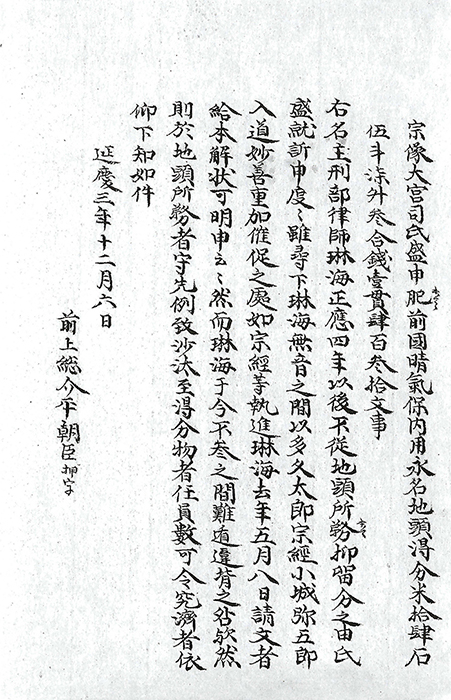 宗像大宮司氏盛申肥前國晴氣保内用永名地頭得分米拾肆石
伍斗柒升叁合錢壹貫肆百叁拾文事
右名主刑部律師琳海正應四年以後不從地頭所務抑留分之由氏
盛就訴申度〻雖尋下琳海無音之間以多久太郎宗經小城弥五郎
入道妙善重加催促之處如宗經等執進琳海去年五月八日請文者
給本解状可明申云〻然而琳海于今不叁之間難遁違背之咎歟然
則於地頭所務者守先例致沙汰至得分物者任員數可令究濟者依
仰下知如件
延慶三年十二月六日
前上総介平朝臣 押字